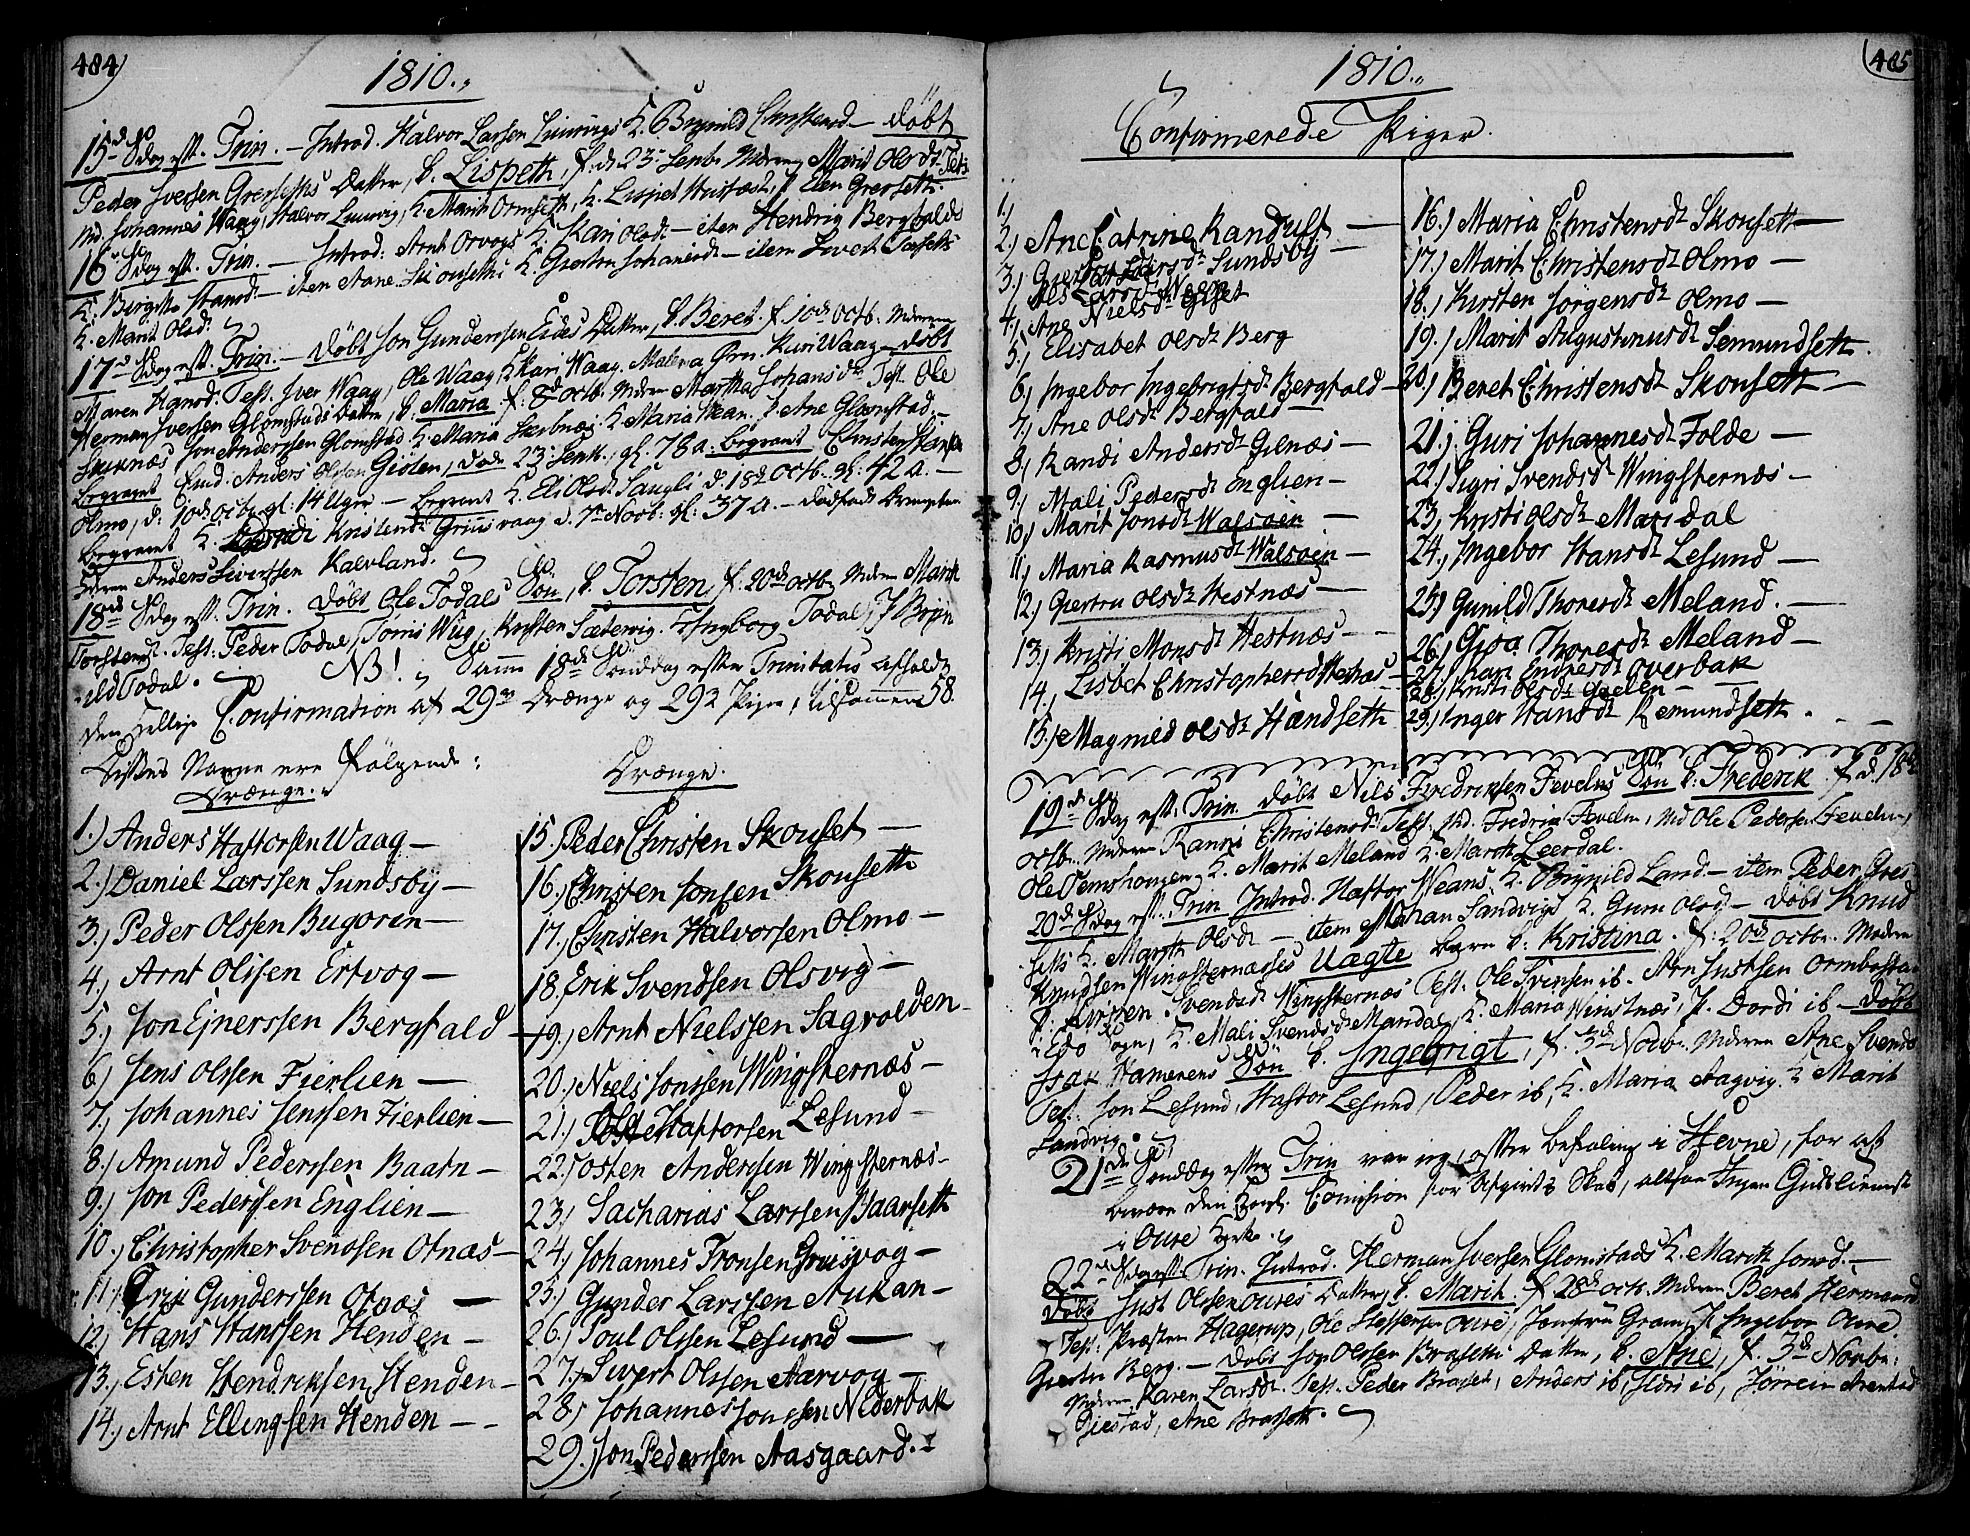 484)
1810.
15de Sdag eft. Trin. — Introd. Halvor Larsen K. Brynild Christensd — døbt
Peder Iversen Datter, b. Lispeth, f. d. 23 Septb. Moderen Marit Olsdr. Test.
Md Johannes Waag, Halvor K. Marit Ormseth, K. Lispet P. Elen Grerseth.
16de Sdag eft. Trin. — Introd: Arnt Orvogs K. Kari Olsd. — item Hendrig Bergfalds
K. Hansd. — item Arne K. Giertru — item Sivert
K. Marit Olsd.
17de Sdag eft. Trin. — Døbt Jon Gunderssen Eides Datter, b. Beret. f. 10de Octb. Moderen
Maren Hansd. Test. Iver Waag, Ole Waag, K. Kari Waag, Kari Waag — døbt
Herman Iversen Glomstads Datter, b. Maria f. 8de Octb. Moderen Martha Johansdr Test. Ole
Jon Anderssen Glomstad K. Maria K. Maria P. Ane Glomstad. —
begravet Anders Olsen Giølen, død 23 Septb., gl. 78 a. begravet Christen
Olmo, d: 10de Octb. gl: 14 Uger — begravet K. Eli Olsdr Saugli d. 18de Octb. gl: 42 a. —
begravet K. d. 7de Novb: gl: 37 a. —
Anders Siverssen Kalvland.
18de Sdag eft. Trin. Døbt Ole Todals Søn, b. Torsten, f. 20de Octb. Moderen Marit
Torstensd. Test. Peder Todal, Kristen Sætervig. Ingborg Todal, P. Bryn
ild Todal.
NB! Samme 18de Sønddag efter Trinitatis afholdt
den hellige Confirmation af 29 Drænge og 29 Piger, tilsammen 58.
Disses Navne ere følgende:
Drænge.
1.) Anders Haftorssen Waag —
2.) Daniel Larssen Sundsby —
3.) Peder Olssen Bugoren —
4.) Arnt Olssen Ertvog —
5.) Jon Ejnerssen Bergfald —
6.) Jens Olssen Fierlien —
7.) Johannes Jenssen Fierlien —
8.) Amund Pederssen Baatn —
9.) Jon Pederssen Englien —
10.) Christopher Svendsen Otnæs —
11.) Erik Gunderssen Otnæs —
12.) Hans Hanssen Henden —
13.) Esten Hendriksen Henden —
14.) Arnt Ellingsen Henden —
Drænge.
15.) Peder Christen Skouset —
16.) Christen Jonsen Skouseth
17.) Christen Halvorsen Olmo —
18. Erik Svendsen Olsvig —
19.) Arnt Nielssen Sagvolden —
20.) Niels Jonssen Wingsternæs —
21.) Ole Haftorsen Lesund —
22.) Tosten Anderssen Wingsternæs —
23.) Sacharias Larssen Baarseth
24.) Johannes Tronsen Griisvog —
25.) Gunder Larssen Aukan —
26.) Poul Olssen Lesund —
27.) Sivert Olssen Aarvog —
28.) Johannes Jonssen Nederbak
29.) Jon Pederssen Aasgaard. —
485
1810.
Confirmerede Piger.
1.)
2.) Ane Catrine Randulft —
3.) Giertru Larsdr Sundsby —
Els Larsdr Waag
4.) Ane Nielsdr Giset
5.) Elisabet Olsdr Berg
6.) Ingebor Ingebrigtsdr Bergfald —
7.) Ane Olsdr Bergfald —
8.) Randi Andersdr Gilnæs —
9.) Mali Pedersdr Englien —
10.) Marit Jonsdr Walsøen —
11.) Maria Rasmusdr Walsøen —
12.) Giertru Olsdr Hestnæs —
13.) Kristi Monsdr Hestnæs —
14.) Lisbet Christophersd Hestnæs —
15.) Magnild Olsdr Handseth
16.) Maria Christensdr Skouseth —
17.) Marit Christensdr Olmo —
18.) Kirsten Jørgensdr Olmo —
19.) Marit Augustinusdr Semundseth.
20.) Beret Christensdr Skouseth —
21.) Guri Johannesdr Folde —
22.) Sigri Svendsdr Wingsternæs —
23.) Kristi Olsdr Maridal
24.) Ingebor Hansdr Lesund —
25.) Gunild Thoresdr Meland. —
26.) Gioa Thoresdr Meland —
27.) Kari Endresdr Overbak
28.) Kristi Olsdr Giølen —
29.) Inger Hansdr Remundseth. —
19de Sdag eft. Trin. døbt Nils Fredriksen Fevelns Søn b. Frederik f. d. 18de
Octb. Moderen Ranni Christensdr. Test. Md. Fredrik Feveln, Md Ole Pedersen Feveln,
Ole K. Marit Meland K. Marith Leerdal.
20de Sdag eft. Trin. Introd. Haftor Weans K. Brynild Land. — item Peder Gres
seth K. Marith Olsdr — item Johan Sandvigs K. Guru Olsd — Døbt Knud
Knudsen Wingsternæsses Uægte barn b. Kristina. f. 20de Octbr. Moder
P. Kirsten Svendsdr Wingsternæs Test. Ole Svensen ib. Arn Justsen
i Edø Sogn, K. Mali Svendsdr Maridal, K. Maria P. Dordi ib — Døbt
Isak Hamerens Søn b. Ingebrigt, f. 3de Novb. Moderen Ane Svends
Test. Jon Lesund, Haftor Lesund, Peder ib, K. Maria Aagvig K. Marit
Sandvig.
21de Sønddag efter Trin var jeg, efter befaling i Hevne, for at
bivære den Comission for Afgivts Skat, altsaa Ingen Gudstienest
i Oure Kirke.
22de Sdag eft. Trin. Introd. Herman Iversen Glomstads K. Marith Jonsd. —
Døbt Just Olssen Oures Datter, b. Marit. f. 28de Octb. Moderen Beret Hermansd
Test: Præsten Hagerup, Ole Steffensen Oure, Jomfru Gram, P. Ingebor Oure
Giertru Berg. — Døbt Jon Olssen Brasetts Datter, b. Ane, f. 3de Novbr:
Moderen Karen Larsdr. Test. Peder Braset, Anders ib, ib,
Ane Braseth.